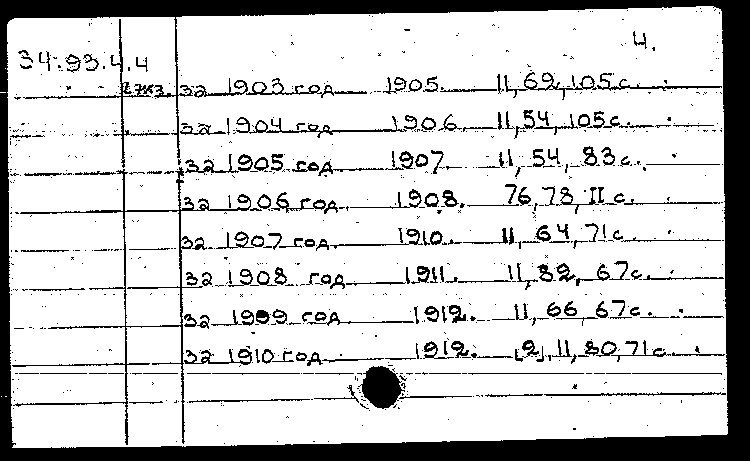 4.
34.93.4.4
2 экз. за 1903 год 1905. II, 69, 105 с.
за 1904 год 1906. II, 54, 105 с.
за 1905 год 1907. II, 54, 83 с.
за 1906 год. 1908. 76, 78, II с.
за 1907 год. 1910. II, 64, 71 с.
за 1908 год 1911. II, 82, 67 с.
за 1909 год 1912. II, 66, 67 с.
за 1910 год 1912. [2], II, 80, 71 с.